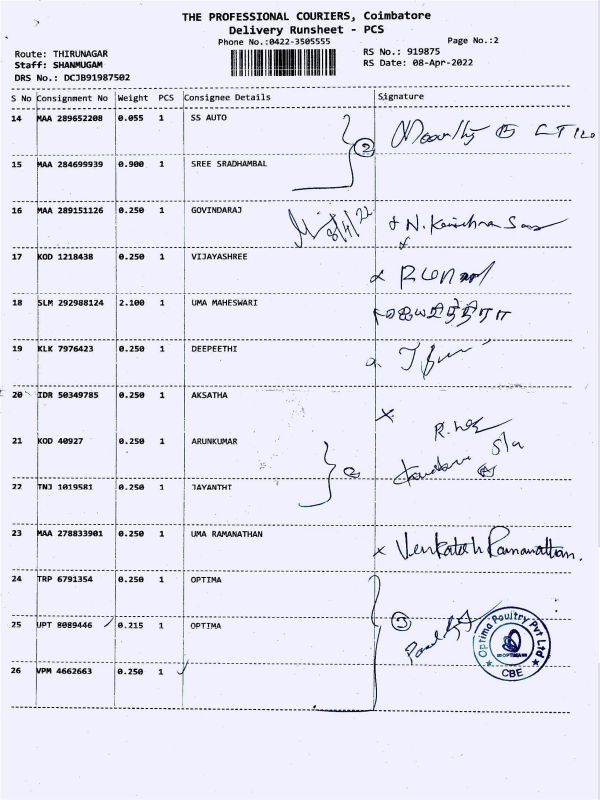 THE PROFESSIONAL COURIERS, Coimbatore
Delivery Runsheet - PCS
Phone No.:0422-3505555
Page No.:2
Route: THIRUNAGAR
RS No.: 919875
Staff: SHANMUGAM
RS Date: 08-Apr-2022
DRS No.: DCJB91987502
S No Consignment No Weight PCS Consignee Details Signature
14 MAA 289652208 0.055 1 SS AUTO
2
15 MAA 284699939 0.900 1 SREE SRADHAMBAL
16 MAA 289151126 0.250 1 GOVINDARAJ
8/4/22
17 KOD 1218438 0.250 1 VIJAYASHREE
18 SLM 292988124 2.100 1 UMA MAHESWARI
19 KLK 7976423 0.250 1 DEEPEETHI
20 IDR 50349785 0.250 1 AKSATHA
21 KOD 40927 0.250 1 ARUNKUMAR
22 TNJ 1019581 0.250 1 JAYANTHT
23 MAA 278833901 0.250 1 UMA RAMANATHAN
Venkatesh Ramanathan.
24 TRP 6791354 0.250 1 OPTIMA
25 UPT 8089446 0.215 1 OPTIMA
Optima Poultry Pvt Ltd
CBE
26 VPM 4662663 0.250 1